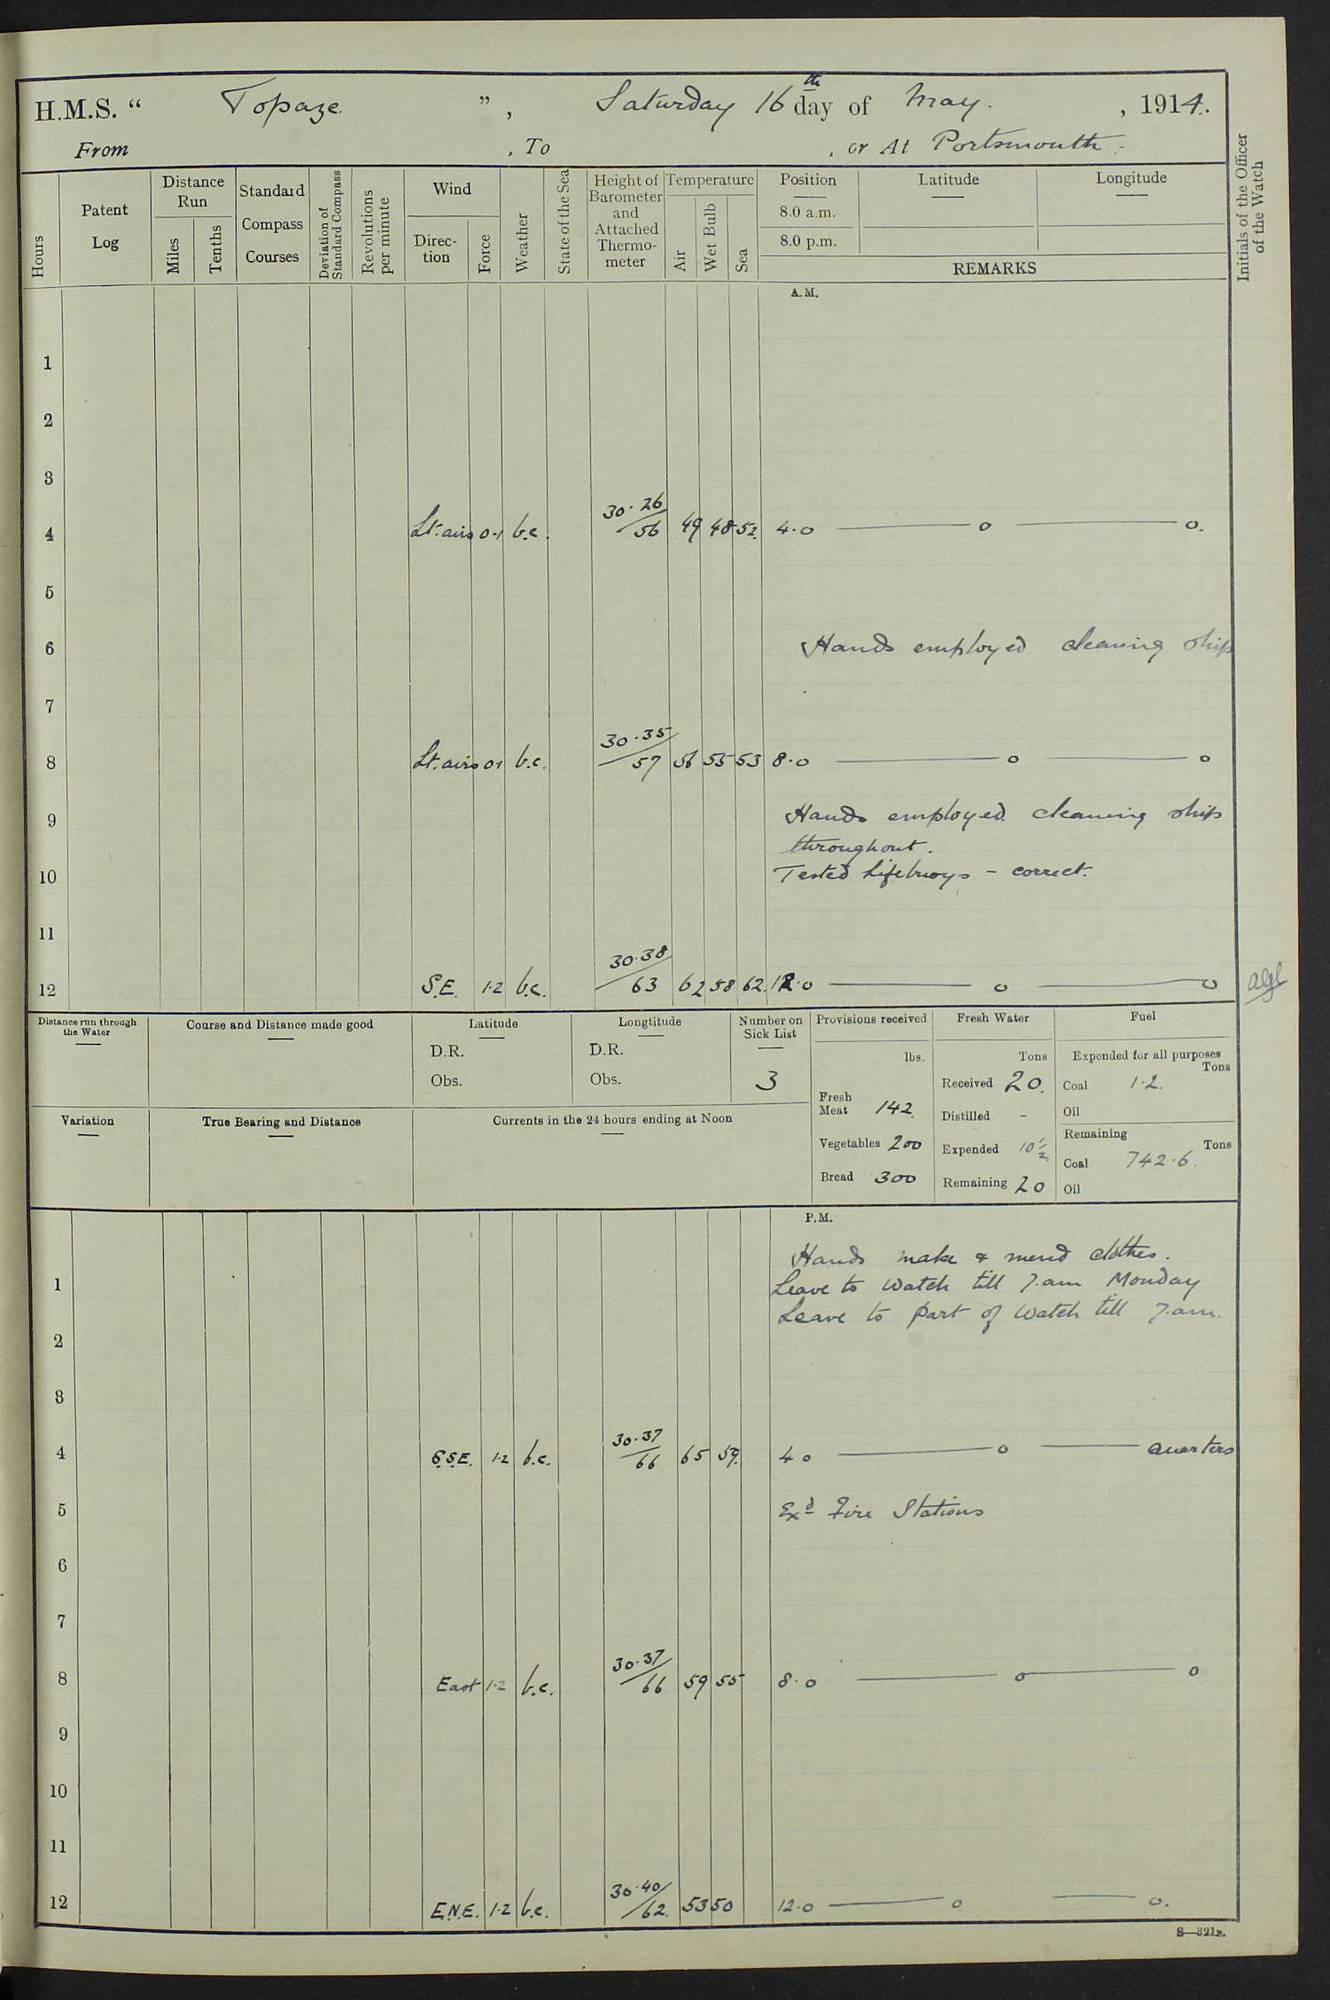 H.M.S. “ Topaze ” , Saturday 16th day of May. , 1914.
From , To , or At Portsmouth -
Hours
Patent Log
Distance Run
Miles
Tenths
Standard Compass Courses
Deviation of Standard Compass
Revolutions per minute
Wind
Direction
Force
Weather
State of the Sea
Height of Barometer and Attached Thermometer
Temperature
Air
Wet Bulb
Sea
Position
8.0 a.m.
8.0 p.m.
Latitude
Longitude
REMARKS
Initials of the Officer of the Watch
A.M.
1
2
3
4 Lt. airs 0·1 b.c. 30·26/56 49 48 52 4·0 — o — o.
5
6 Hands employed cleaning ship
7
8 Lt. airs 0·1 b.c. 30·35/57 56 55 53 8·0 — o — o
9 Hands employed cleaning ship
throughout.
10 Tested Lifebuoys - correct.
11
12 S.E. 1·2 b.c. 30·38/63 62 58 62 12·0 — o — o
Distance run through the Water
Course and Distance made good
Latitude
D.R.
Obs.
Longtitude
D.R.
Obs.
Number on Sick List
3
Provisions received
lbs.
Fresh Meat 142
Vegetables 200
Bread 300
Fresh Water
Tons
Received 20
Distilled -
Expended 10½
Remaining 20
Fuel
Expended for all purposes
Tons
Coal 1·2
Oil
Remaining
Tons
Coal 742·6
Oil
Variation
True Bearing and Distance
Currents in the 24 hours ending at Noon
P.M.
Hands make & mend clothes.
1 Leave to Watch till 7.am Monday
Leave to part of Watch till 7.am.
2
3
4 S.S.E. 1·2 b.c. 30·37/66 65 59 4 0 — o — quarters
5 Exd Fire Stations
6
7
8 East 1·2 b.c. 30·37/66 59 55 8·0 — o — o
9
10
11
12 E.N.E. 1·2 b.c. 30·40/62 53 50 12·0 — o — o.